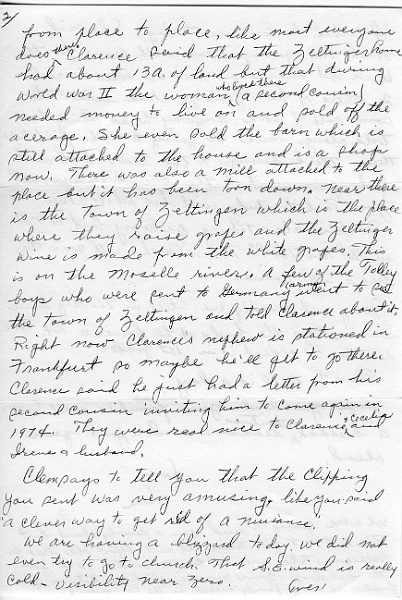 2/
from place to place, like most everyone
does there. Clarence said that the Zeltinger Home
had about 13 a. of land but that during
World War II the woman who kept there (a second cousin)
needed money to live on and sold off the
acerage. She even sold the barn which is
still attached to the house and is a shop
now. There was also a mill attached to the
place but it has been torn down. Near there
is the Town of Zeltingen which is the place
where they raise grapes and the Zeltinger
Wine is made from the white grapes. This
is on the Moselle rivers. A few of the Tolley
boys who were sent to Germany (army) went to see
the town of Zeltingen and told Clarence about it.
Right now Clarence's nephew is stationed in
Frankfurt so maybe he'll get to go there.
Clarence said he just had a letter from his
second cousin inviting him to come again in
1974. They were real nice to Clarence & Cecelia and
Irene & husband.
Clem says to tell you that the clipping
you sent was very amusing, like you said
"a clever way to get rid of a nuisance.
We are having a blizzard today. We did not
even try to go to church. That S.E. wind is really
cold - visibility near zero.
(over)